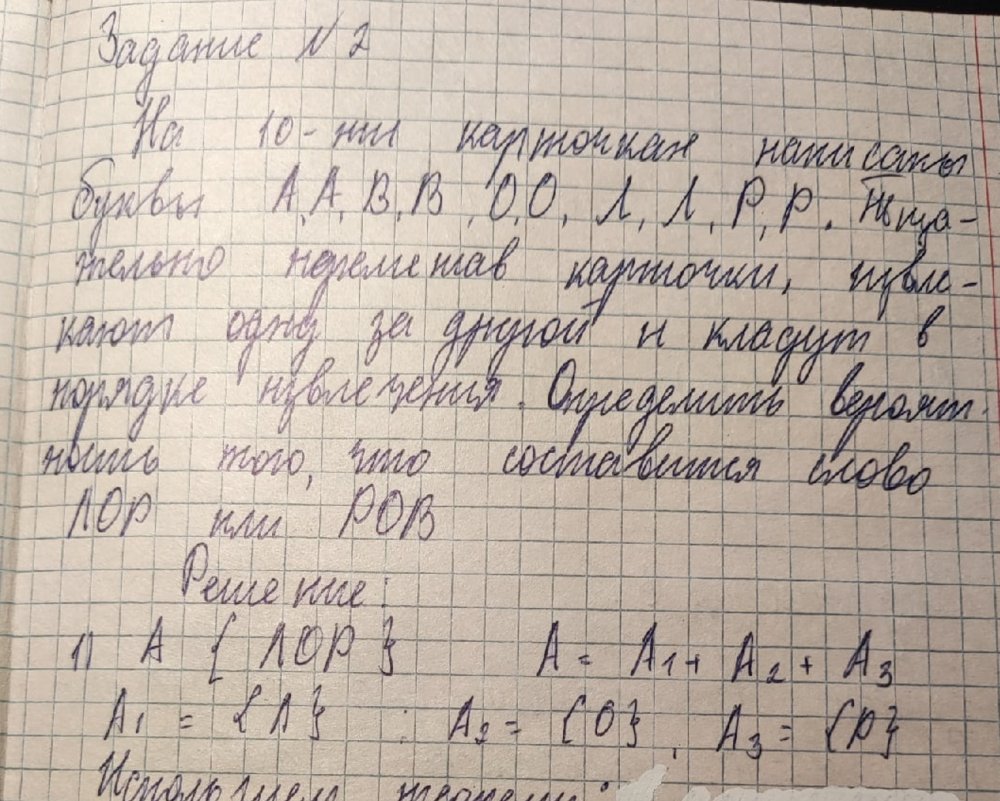 Задание N2
На 10-ти карточках написаны
буквы А, А, В, В, О, О, Л, Л, Р, Р. Тща-
тельно перемешав карточки, извле-
кают одну за другой и кладут в
порядке извлечения. Определить вероят-
ность того, что составится слово
ЛОР или РОВ
Решение:
1) А { ЛОР } А = А1 + А2 + А3
А1 = {Л} ; А2 = {О}, А3 = {Р}
Используем